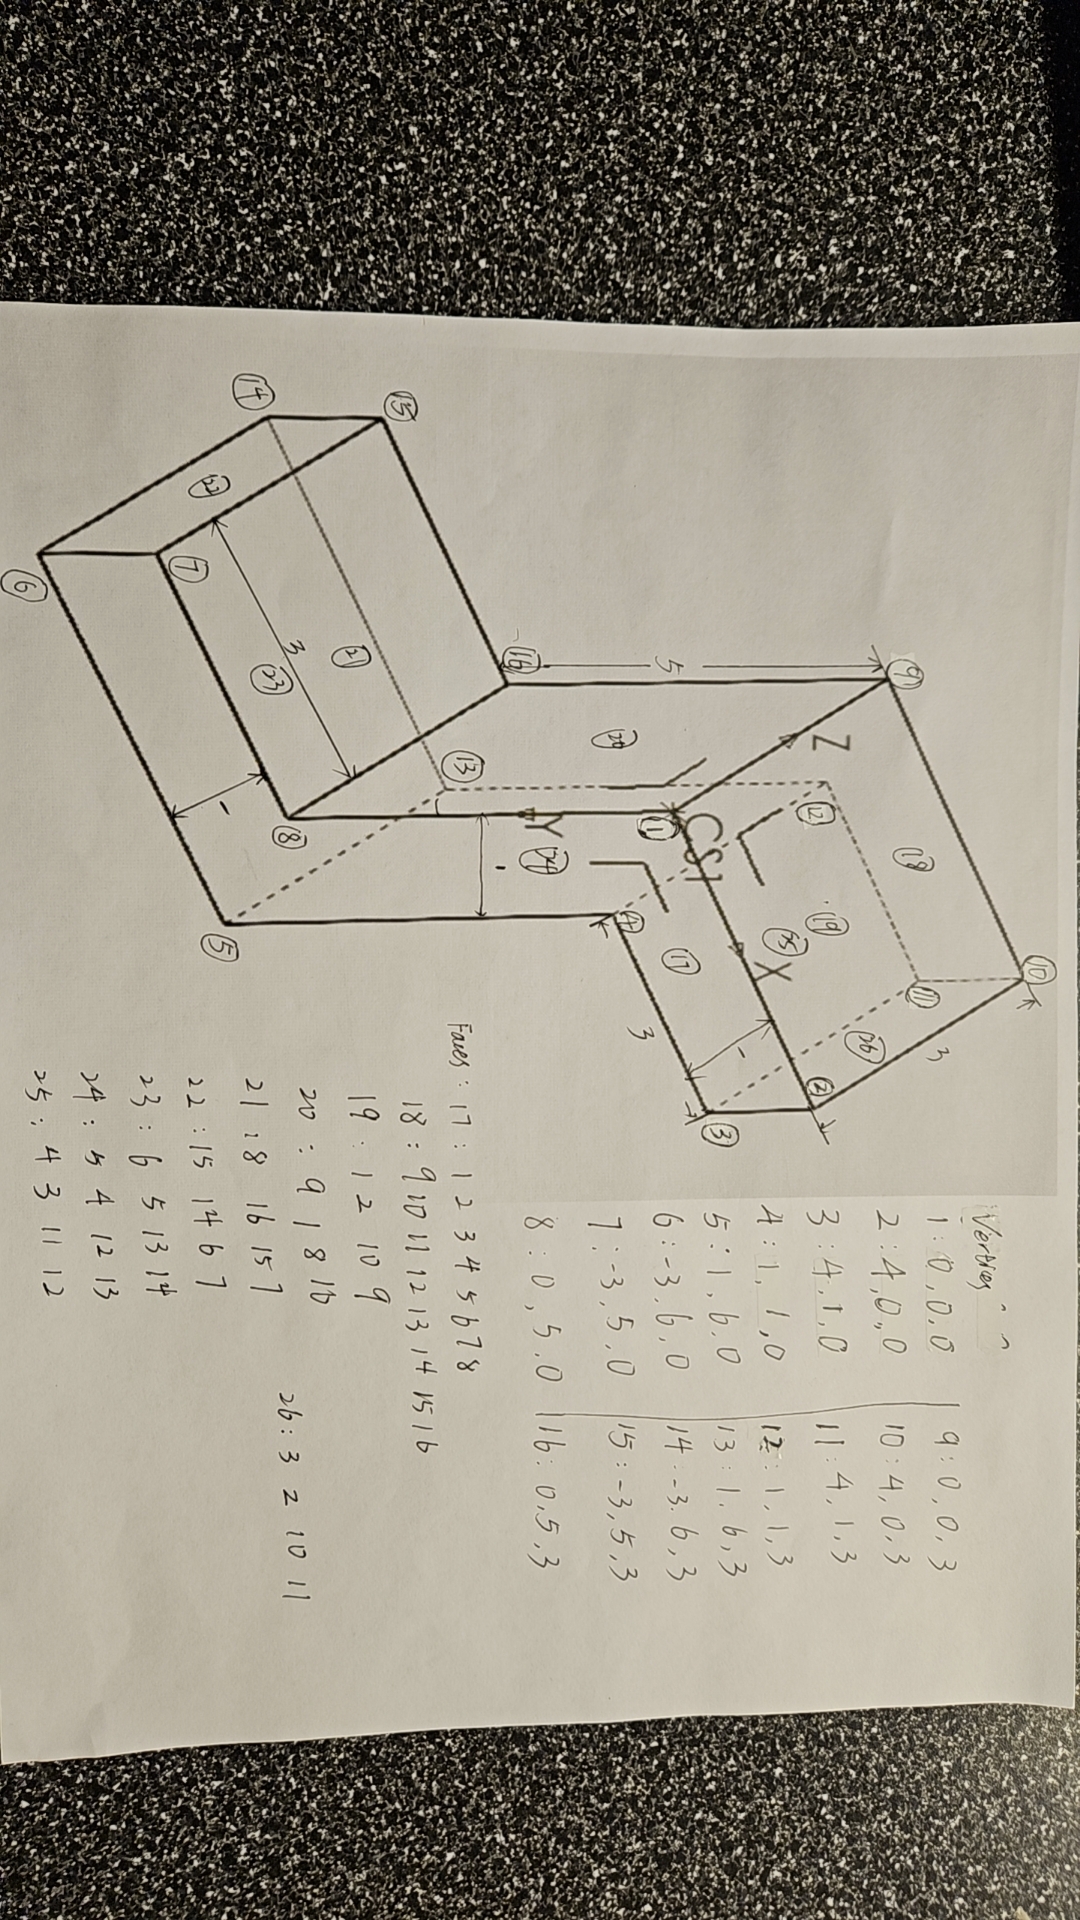 10
3
11
9
18
26
12
19
Z
2
25
X
1
3
CS1
1
17
5
4
3
20
Y
24
1
16
13
15
21
3
23
8
14
22
1
5
7
6
Vertices
1 : 0, 0, 0
2 : 4, 0, 0
3 : 4, 1, 0
4 : 1, 1, 0
5 : 1, 6, 0
6 : -3, 6, 0
7 : -3, 5, 0
8 : 0, 5, 0
9 : 0, 0, 3
10 : 4, 0, 3
11 : 4, 1, 3
12 : 1, 1, 3
13 : 1, 6, 3
14 : -3, 6, 3
15 : -3, 5, 3
16 : 0, 5, 3
Faces : 17 : 1 2 3 4 5 6 7 8
18 : 9 10 11 12 13 14 15 16
19 : 1 2 10 9
20 : 9 1 8 16
21 : 8 16 15 7
22 : 15 14 6 7
23 : 6 5 13 14
24 : 5 4 12 13
25 : 4 3 11 12
26 : 3 2 10 11